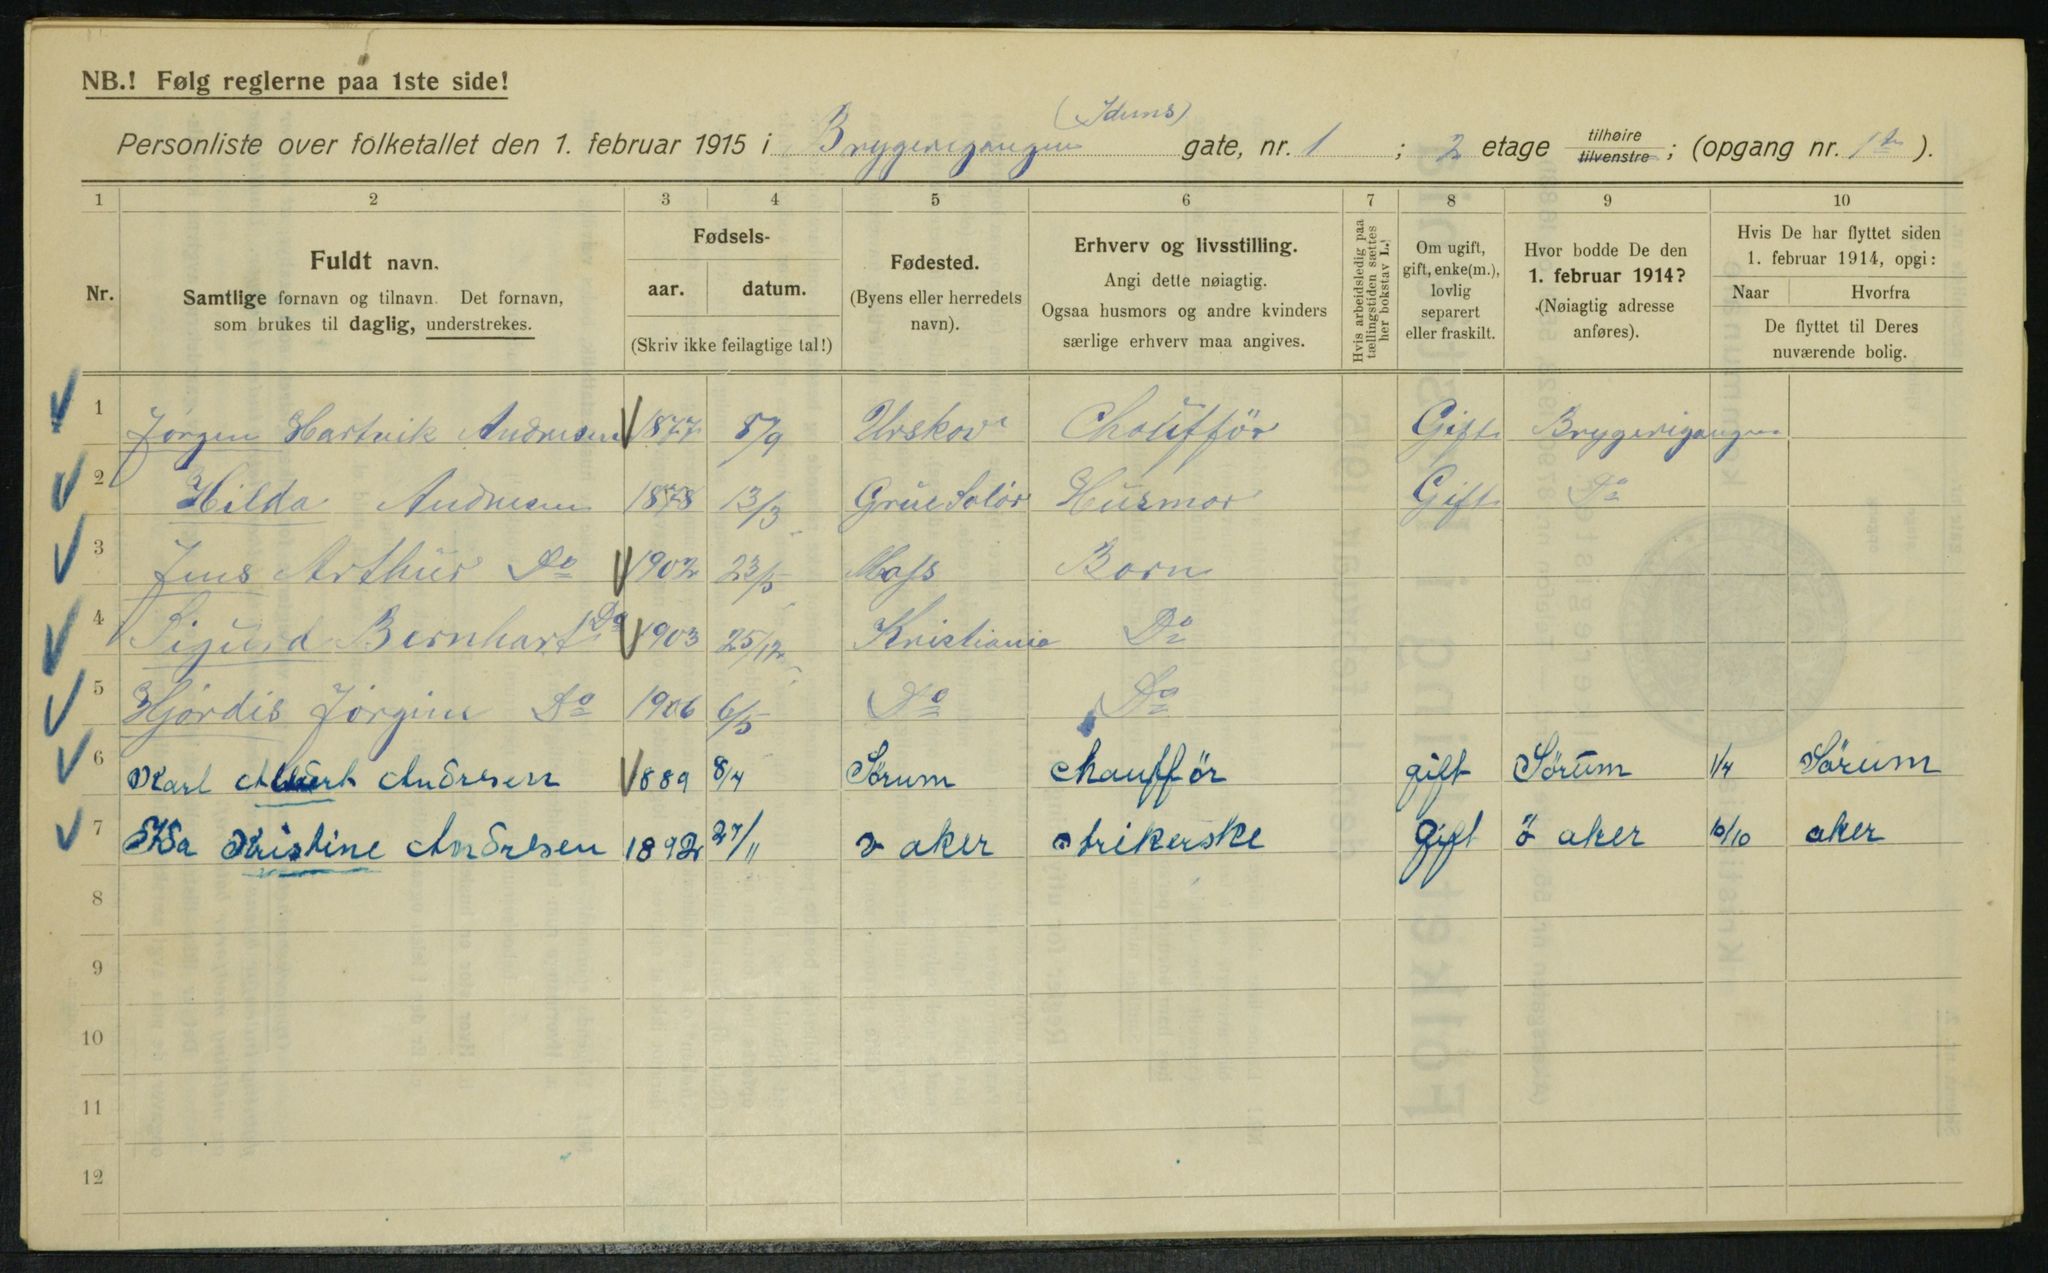 NB.! Følg reglerne paa 1ste side!
(Iduns)
Personliste over folketallet den 1. februar 1915 i Bryggerigangen gate, nr. 1 ; 2 etage tilhøire tilvenstre; (opgang nr. 1 ).
1 2 3 4 5 6 7 8 9 10
Nr.
Fuldt navn.
Samtlige fornavn og tilnavn. Det fornavn,
som brukes til daglig, understrekes.
Fødsels-
aar. datum.
(Skriv ikke feilagtige tal!)
Fødested.
(Byens eller herredets
navn).
Erhverv og livsstilling.
Angi dette nøiagtig.
Ogsaa husmors og andre kvinders
særlige erhverv maa angives.
Hvis arbeidsledig paa
tællingstiden sættes
her bokstav L.!
Om ugift,
gift, enke(m.),
lovlig
separert
eller fraskilt.
Hvor bodde De den
1. februar 1914?
(Nøiagtig adresse
anføres).
Hvis De har flyttet siden
1. februar 1914, opgi:
Naar Hvorfra
De flyttet til Deres
nuværende bolig.
1 Jørgen Hartvik Andresen 1877 8/9 Urskov Chouffør Gift Bryggerigangen
2 Hilda Andresen 1878 13/3 Grue Solør Husmor Gift Do
3 Jens Arthur Do 1902 23/5 Moss Barn
4 Sigurd Bernhart Do 1903 25/12 Kristiania Do
5 Hjørdis Jørgine Do 1906 6/5 Do Do
6 Karl Andresen 1889 8/4 Sørum Chauffør gift Sørum 1/4 Sørum
7 Kristine Andresen 1892 27/11 aker strikerske gift ö aker 10/10 aker
8
9
10
11
12